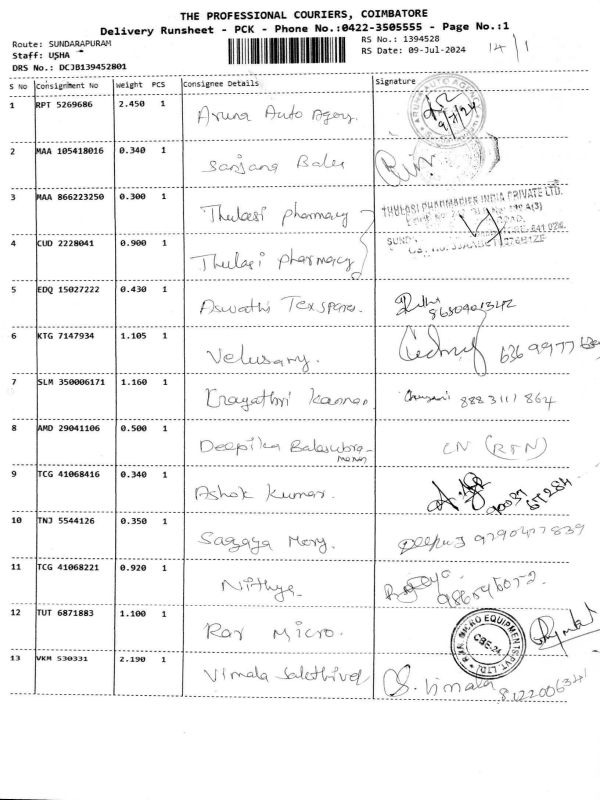 THE PROFESSIONAL COURIERS, COIMBATORE
Delivery Runsheet - PCK - Phone No.:0422-3505555 - Page No.:1
Route: SUNDARAPURAM
RS No.: 1394528
Staff: USHA
RS Date: 09-Jul-2024
14/1
DRS No.: DCJB139452801
S No Consignment No Weight PCS Consignee Details Signature
1 RPT 5269686 2.450 1 Aruna Auto Agency.
9/7/24
2 MAA 105418016 0.340 1 Sanjana Bales
3 MAA 866223250 0.300 1 Thulasi pharmacy
THULASI PHARMACIES INDIA PRIVATE LTD.
4 CUD 2228041 0.900 1 Thulasi pharmacy
5 EDQ 15027222 0.430 1 Aswathi Texspares.
6 KTG 7147934 1.105 1 Velusamy.
7 SLM 350006171 1.160 1 Kannan
8883111864
8 AMD 29041106 0.500 1 Deepika Balasubra-
manian
CN (RTN)
9 TCG 41068416 0.340 1 Ashok Kumar.
10 TNJ 5544126 0.350 1 Sagaya Mery.
9790477839
11 TCG 41068221 0.920 1 Nithya.
12 TUT 6871883 1.100 1 Rax Micro.
MICRO EQUIPMENTS PVT. LTD.
CBE-24.
13 VKM 530331 2.190 1 Vimala Sakthivel
S. Vimala
8122006341